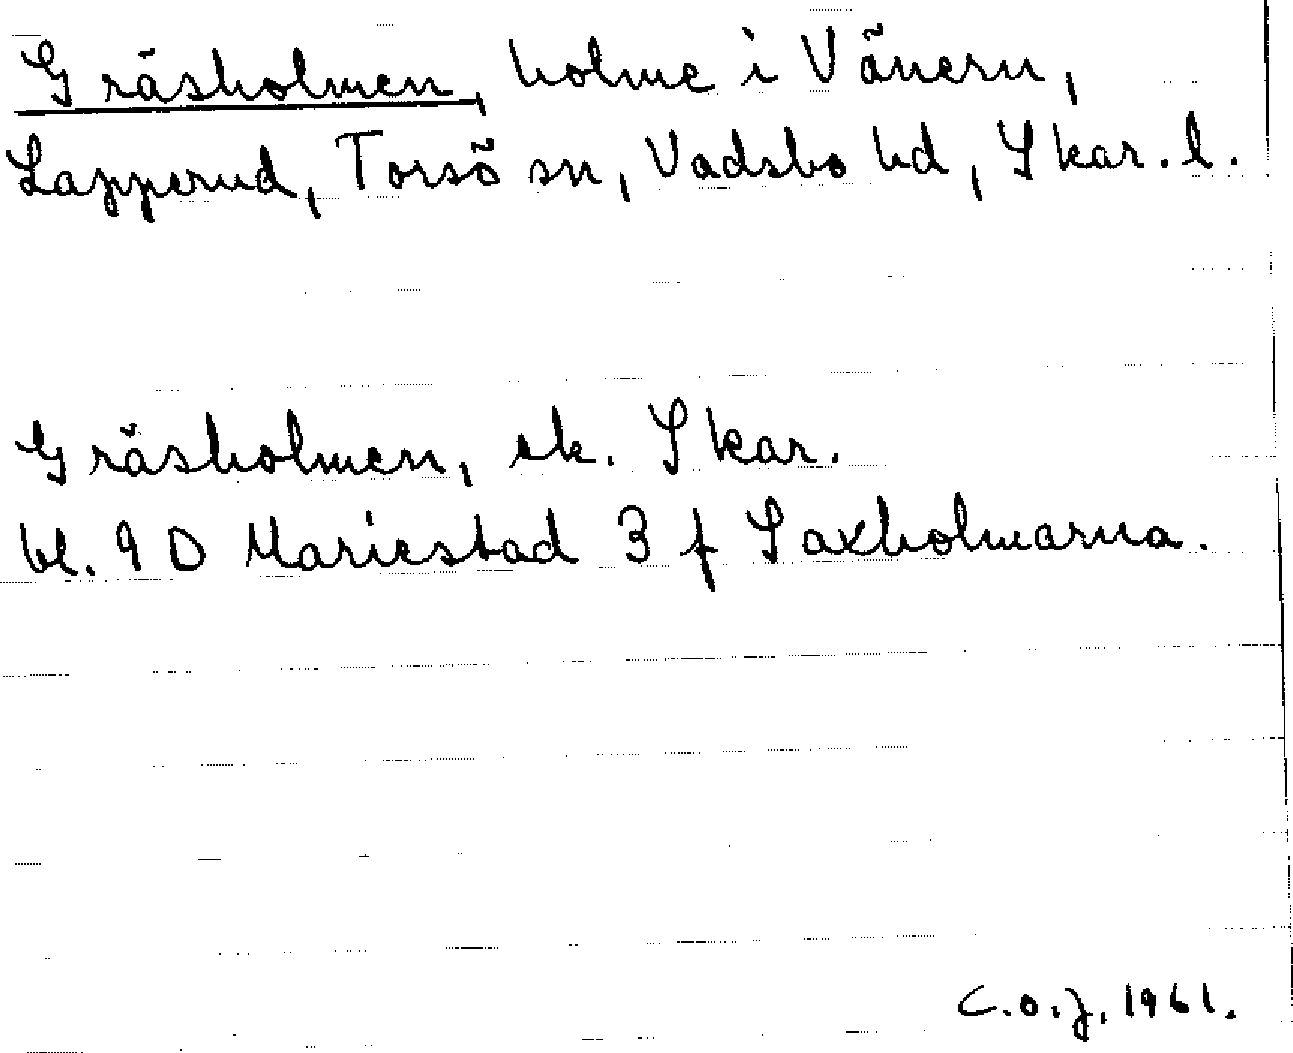 Gräsholmen, holme i Vänern,
Lapperud, Torsö sn, Vadsbo hd, Skar. l.
Gräsholmen, ek. Skar.
bl. 9 D Mariestad 3 f Saxholmarna.
C.O.J. 1961.